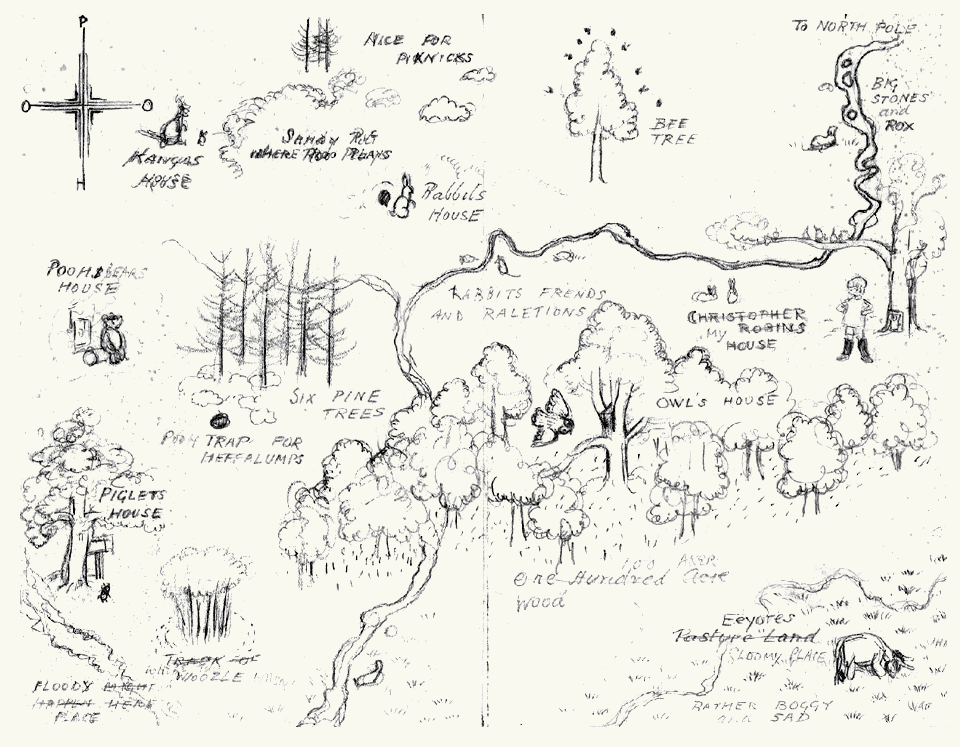 P
NICE FOR
PIKNICKS
TO NORTH POLE
BIG
STONES
and
ROX
BEE
TREE
KANGAS
HOUSE
SANDY PIT
WHERE ROO PLAYS
H
Rabbits
HOUSE
POOH BEARS
HOUSE
RABBITS FRENDS
AND RALETIONS
CHRISTOPHER
MY ROBINS
HOUSE
SIX PINE
TREES
OWL'S HOUSE
POOH TRAP FOR
HEFFALUMPS
PIGLETS
HOUSE
100 AKER
One Hundred Acre
Wood
Eeyores
Pasture Land
GLOOMY PLACE
TRACK OF
WOOZLE
FLOODY MIGHT
HAPPEN HERE
PLACE
RATHER BOGGY
and SAD